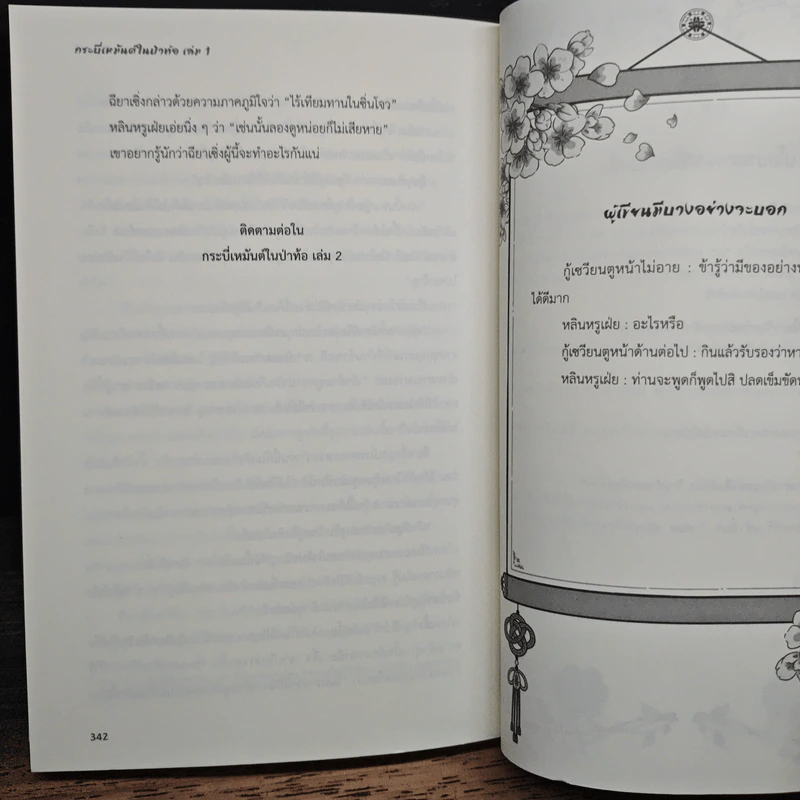 กระบี่เหมันต์ในป่าท้อ เล่ม 1
ฉียาเซิ่งกล่าวด้วยความภาคภูมิใจว่า “ไร้เทียมทานในซิ่นโจว”
หลินหรูเฝ่ยเอ่ยนิ่ง ๆ ว่า “เช่นนั้นลองดูหน่อยก็ไม่เสียหาย”
เขาอยากรู้นักว่าฉียาเซิ่งผู้นี้จะทำอะไรกันแน่
ติดตามต่อใน
กระบี่เหมันต์ในป่าท้อ เล่ม 2
342
ผู้เขียนมีบางอย่างจะบอก
กู้เซวียนตูหน้าไม่อาย : ข้ารู้ว่ามีของอย่าง
ได้ดีมาก
หลินหรูเฝ่ย : อะไรหรือ
กู้เซวียนตูหน้าด้านต่อไป : กินแล้วรับรองว่า
หลินหรูเฝ่ย : ท่านจะพูดก็พูดไปสิ ปลดเข็มขัด